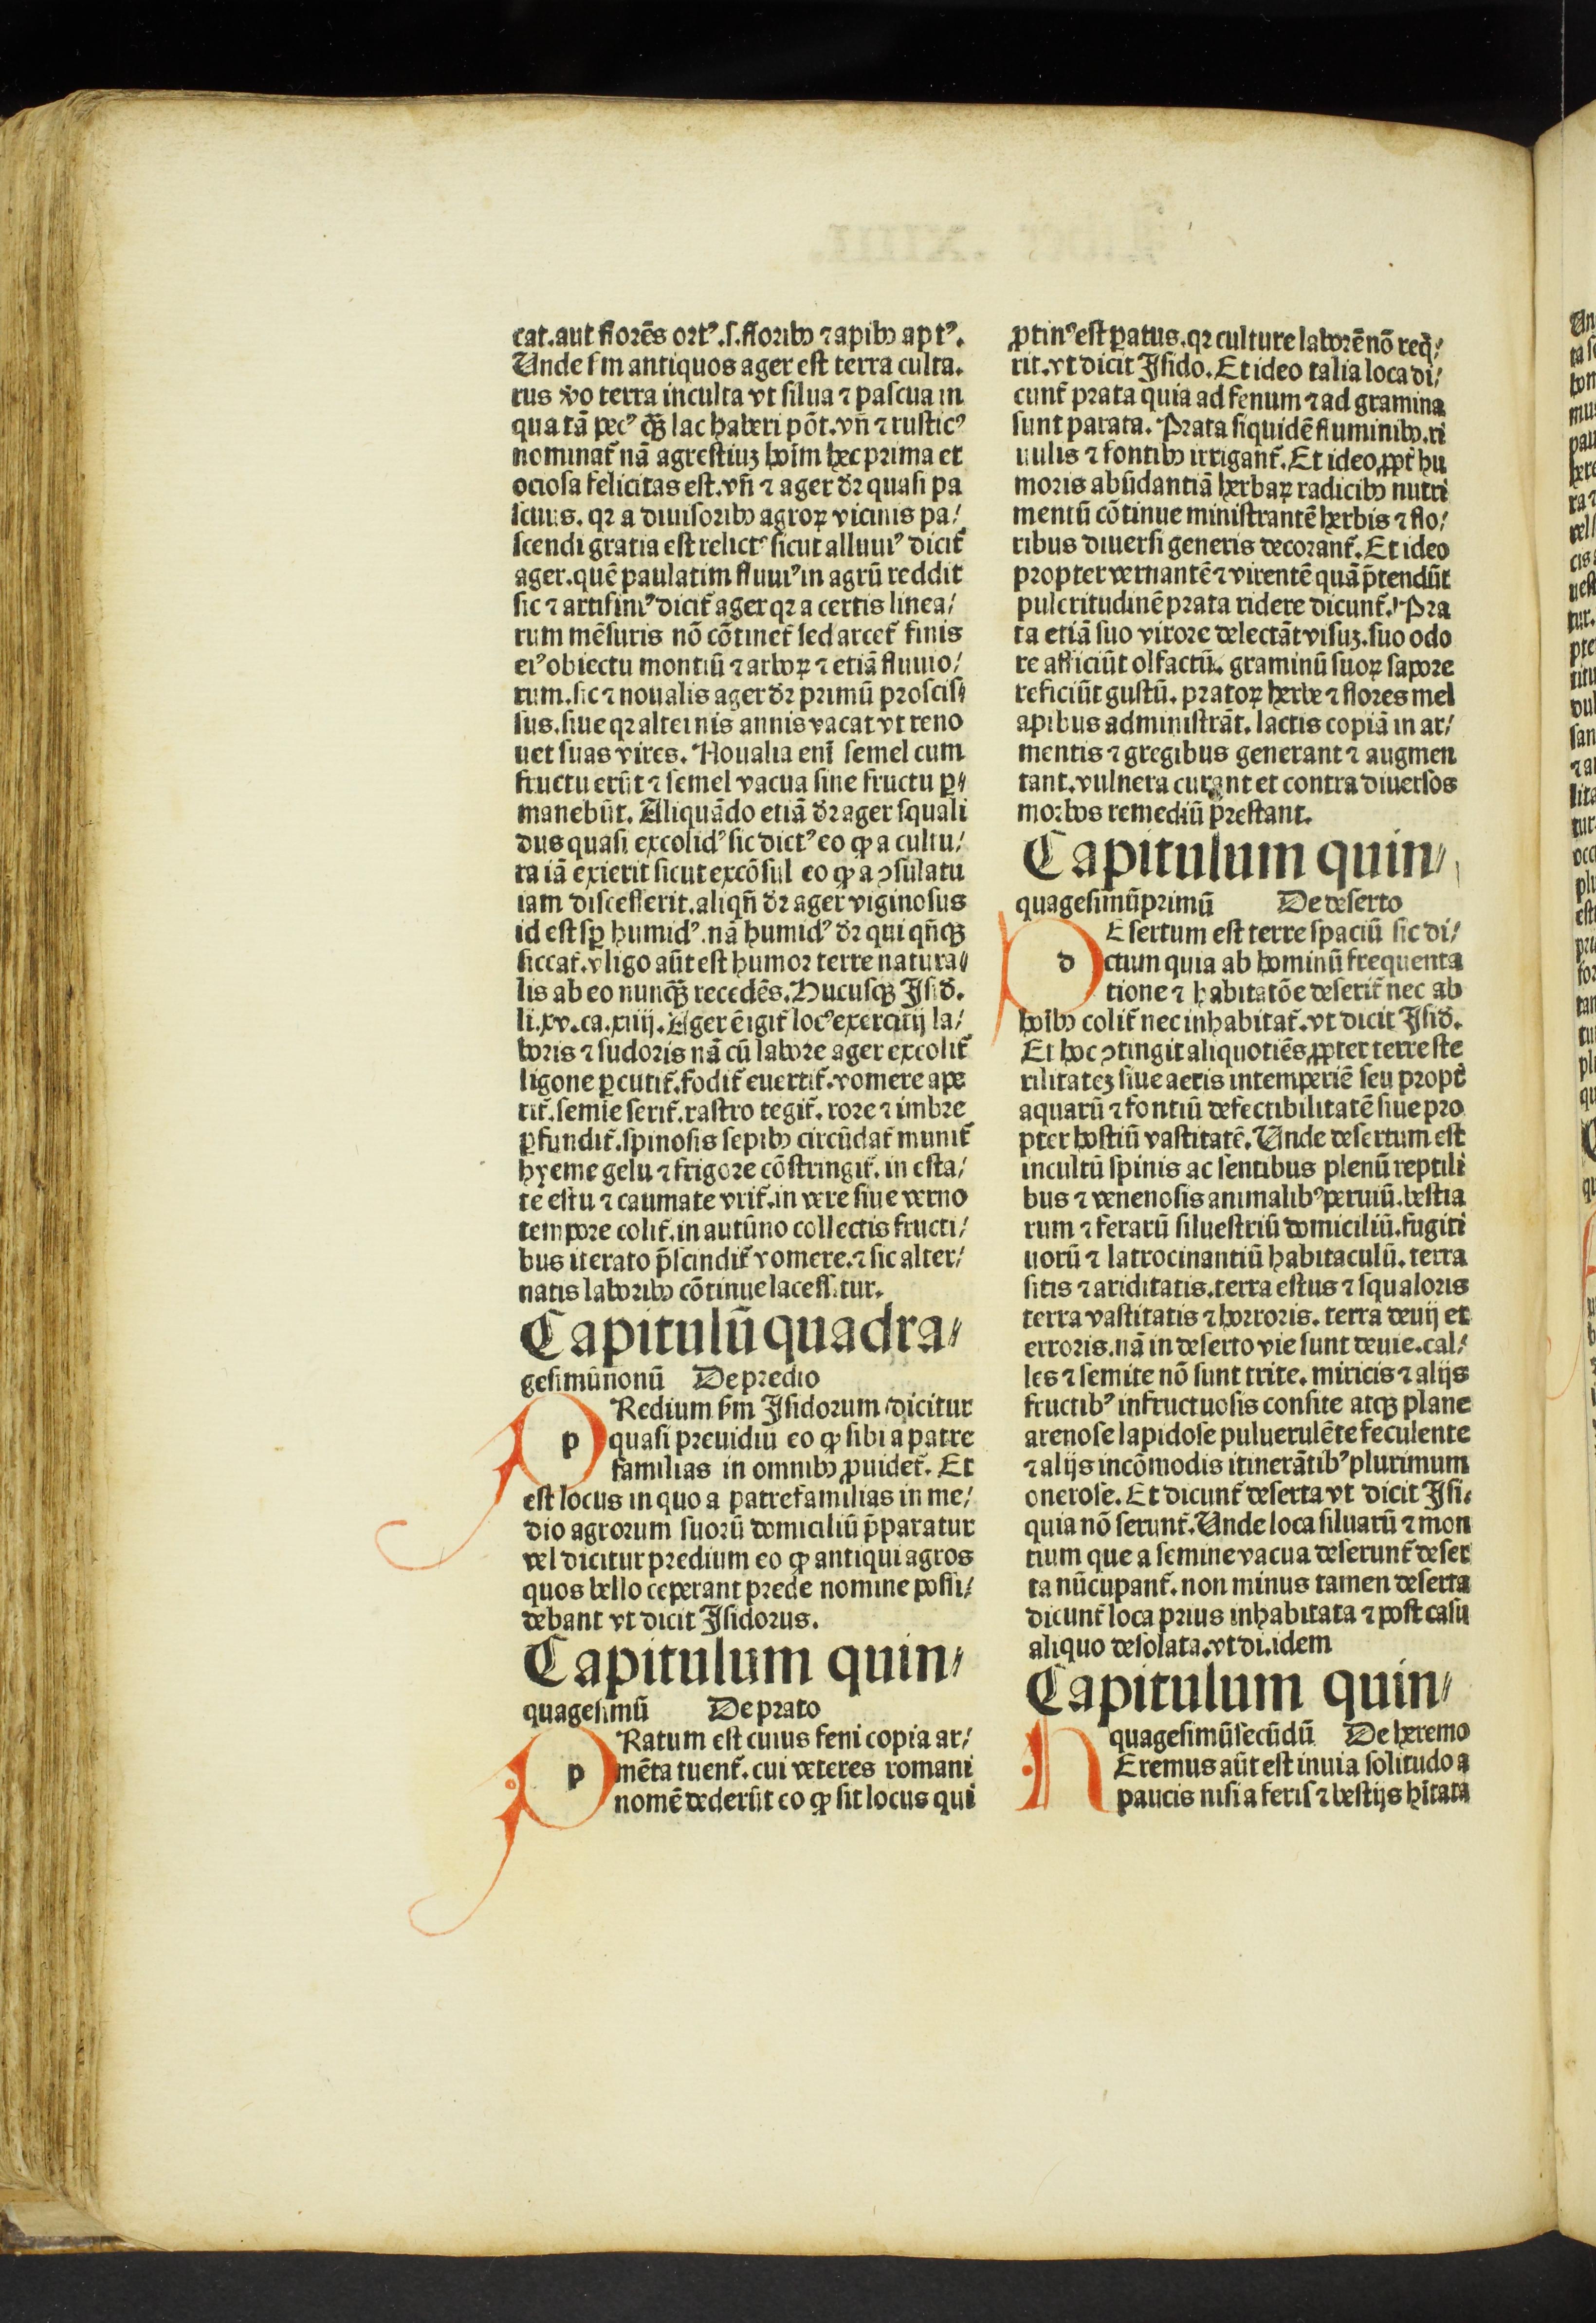 cat.aut florēs ortꝰ.ſ.floribꝫ ⁊ apibꝫ aptꝰ.
Unde ſm antiquos ager est terra culta.
rus v̄o terra inculta vt ſilua ⁊ paſcua in
qua tā pecꝰ qͣꝫ lac haberi pōt.vn̄ ⁊ ruſticꝰ
nominat᷑ nā agreſtiuꝫ hoīm hec prima et
ocioſa felicitas eſt.vn̄ ⁊ ager dꝛ quaſi pa
ſcuus. qꝛ a diuiſoribꝫ agroꝝ vicinis pa/
ſcendi gratia eſt relictꝰ ſicut alluuiꝰ dicit᷑
ager.quē paulatim fluuiꝰ in agrū reddit
ſic ⁊ artifiniꝰ dicit᷑ ager qꝛ a certis linea/
rum mēſuris nō cōtinet᷑ ſed arcet᷑ finis
eiꝰ obiectu montiū ⁊ arboꝝ ⁊ etiā fluuio/
rum.ſic ⁊ noualis ager dꝛ primū proſciſ/
ſus.ſiue qꝛ alternis annis vacat vt reno
uet ſuas vires. Noualia enī ſemel cum
fructu erūt ⁊ ſemel vacua ſine fructu ꝑ/
manebūt. Aliquādo etiā dꝛ ager ſquali
dus quaſi excolidꝰ ſic dictꝰ eo ꝙ a cultu/
ra iā exierit ſicut excōſul eo ꝙ a ꝯſulatu
iam diſceſſerit.aliqn̄ dꝛ ager viginoſus
id eſt ſꝑ humidꝰ.nā humidꝰ dꝛ qui qn̄qꝫ
ſiccat᷑.vligo aūt eſt humor terre natura/
lis ab eo nunqͣꝫ recedēs.Hucuſqꝫ Iſid.
li.xv.ca.xiiij. Ager ē igit᷑ locꝰ exercitij la/
boris ⁊ ſudoris nā cū labore ager excolit᷑
ligone ꝑcutit᷑.fodit᷑ euertit᷑.vomere ape
rit᷑.ſemīe ſerit᷑.raſtro tegit᷑. rore ⁊ imbre
ꝑfundit᷑.ſpinoſis ſepibꝫ circūdat᷑ munit᷑
hyeme gelu ⁊ frigore cōſtringit᷑. in eſta/
te eſtu ⁊ caumate vrit᷑.in vere ſiue verno
tempore colit᷑.in autūno collectis fructi/
bus iterato p̄ſcindit᷑ vomere.⁊ ſic alter/
natis laboribꝫ cōtinue laceſſitur.
Capitulū quadra/
geſimūnonū De predio
PRedium ſm Iſidorum dicitur
quaſi preuidiū eo ꝙ ſibi a patre
familias in omnibꝫ ꝓuidet᷑. Et
eſt locus in quo a patrefamilias in me/
dio agrorum ſuorū domiciliū p̄paratur
vel dicitur predium eo ꝙ antiqui agros
quos bello ceperant prede nomine poſſi/
debant vt dicit Iſidorus.
Capitulum quin/
quageſimū De prato
PRatum eſt cuius feni copia ar/
mēta tuent᷑. cui veteres romani
nomē dederūt eo ꝙ ſit locus qui
ꝓtinꝰ eſt ꝑatus.qꝛ culture laborē nō req̄/
rit.vt dicit Iſido. Et ideo talia loca di/
cunt᷑ prata quia ad fenum ⁊ ad gramina
ſunt parata. Prata ſiquidē fluminibꝫ.ri
uulis ⁊ fontibꝫ irrigant᷑. Et ideo ꝓpt᷑ hu
moris abūdantiā herbaꝝ radicibꝫ nutri
mentū cōtinue miniſtrantē herbis ⁊ flo/
ribus diuerſi generis decorant᷑. Et ideo
propter vernantē ⁊ virentē quā p̄tendūt
pulcritudinē prata ridere dicunt᷑. Pra
ta etiā ſuo virore delectāt viſuꝫ.ſuo odo
re afficiūt olfactū. graminū ſuoꝝ ſapore
reficiūt guſtū. pratoꝝ herbe ⁊ flores mel
apibus adminiſtrāt. lactis copiā in ar/
mentis ⁊ gregibus generant ⁊ augmen
tant.vulnera curant et contra diuerſos
morbos remediū p̄eſtant.
Capitulum quin/
quageſimūprimū De deſerto
dEſertum eſt terre ſpaciū ſic di/
ctum quia ab hominū frequenta
tione ⁊ habitatōe deſerit᷑ nec ab
hoībꝫ colit᷑ nec inhabitat᷑.vt dicit Iſid.
Et hoc ꝯtingit aliquotiēs ꝓpter terre ſte
rilitateꝫ ſiue aeris intemperiē ſeu propt᷑
aquarū ⁊ fontiū defectibilitatē ſiue pro
pter hoſtiū vaſtitatē. Unde deſertum eſt
incultū ſpinis ac ſentibus plenū reptili
bus ⁊ venenoſis animalibꝰ peruiū.beſtia
rum ⁊ ferarū ſilueſtriū domiciliū.fugiti
uorū ⁊ latrocinantiū habitaculū. terra
ſitis ⁊ ariditatis.terra eſtus ⁊ ſqualoris
terra vaſtitatis ⁊ horroris. terra deuij et
erroris.nā in deſerto vie ſunt deuie.cal/
les ⁊ ſemite nō ſunt trite. miricis ⁊ alijs
fructibꝰ infructuoſis conſite atqꝫ plane
arenoſe lapidoſe puluerulēte feculente
⁊ alijs incōmodis itinerātibꝰ plurimum
oneroſe. Et dicunt᷑ deſerta vt dicit Iſi.
quia nō ſerunt᷑. Unde loca ſiluarū ⁊ mon
tium que a ſemine vacua deſerunt᷑ deſer
ta nūcupant᷑. non minus tamen deſerta
dicunt᷑ loca prius inhabitata ⁊ poſt caſu
aliquo deſolata.vt di.idem
Capitulum quin/
quageſimūſecūdū De heremo
HEremus aūt eſt inuia ſolitudo a
paucis niſi a feris ⁊ beſtijs hītata